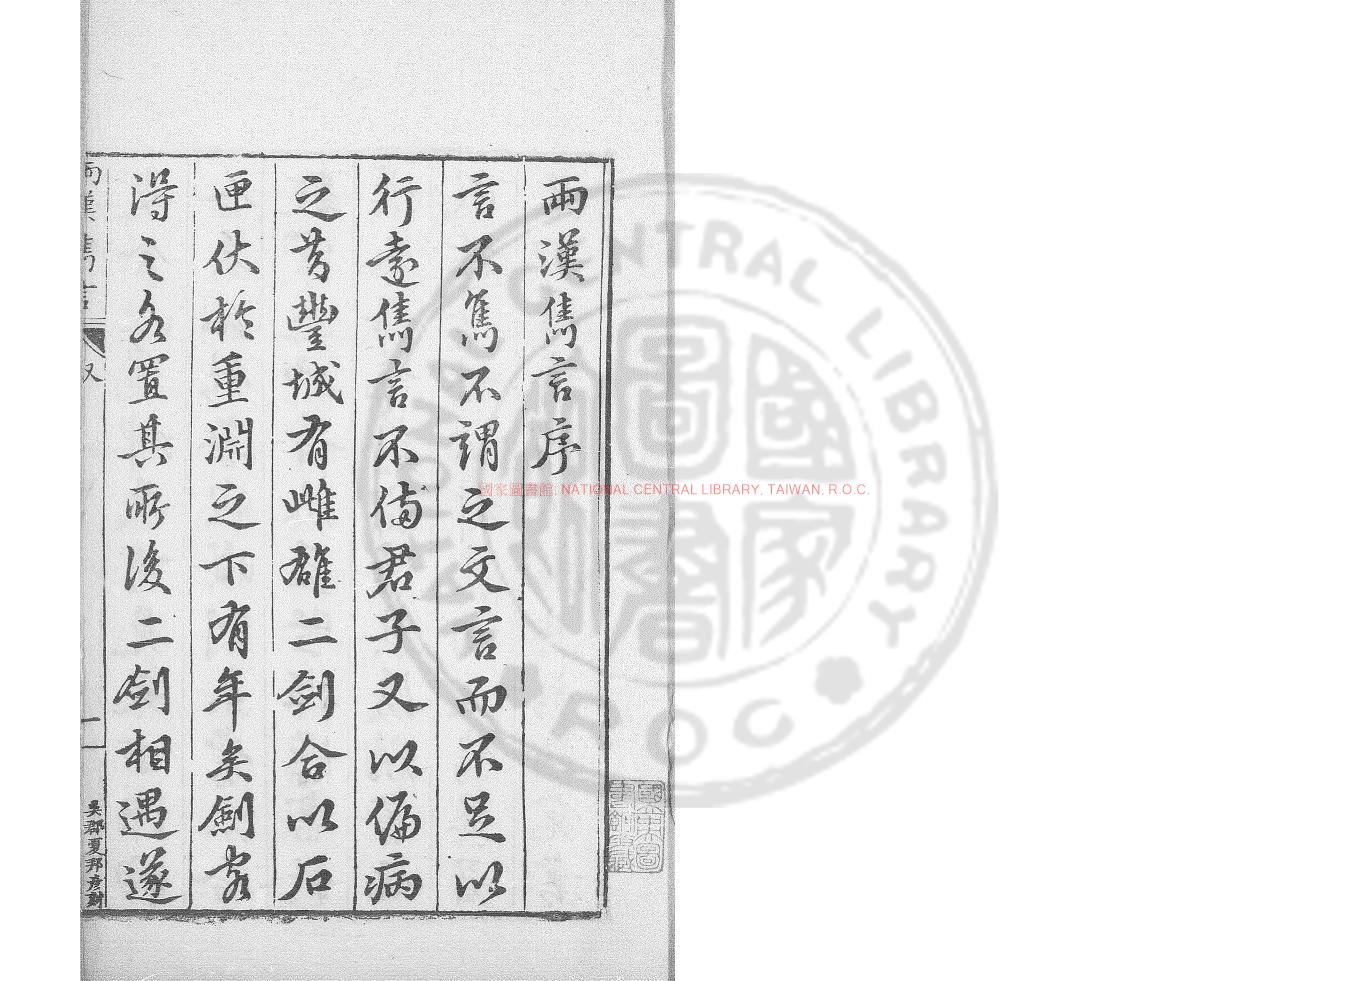 兩漢雋言序
言不雋不謂之文言而不足以
行遠雋言不備君子又以偏病
之昔豐城有雌雄二劍合以石
匣伏於重淵之下有年矣劍客
得之各置其所後二劍相遇遂
兩漢雋言
又
一
吳郡夏邦彥刻
國家圖書館, NATIONAL CENTRAL LIBRARY, TAIWAN, R.O.C.
CENTRAL LIBRARY
ROC